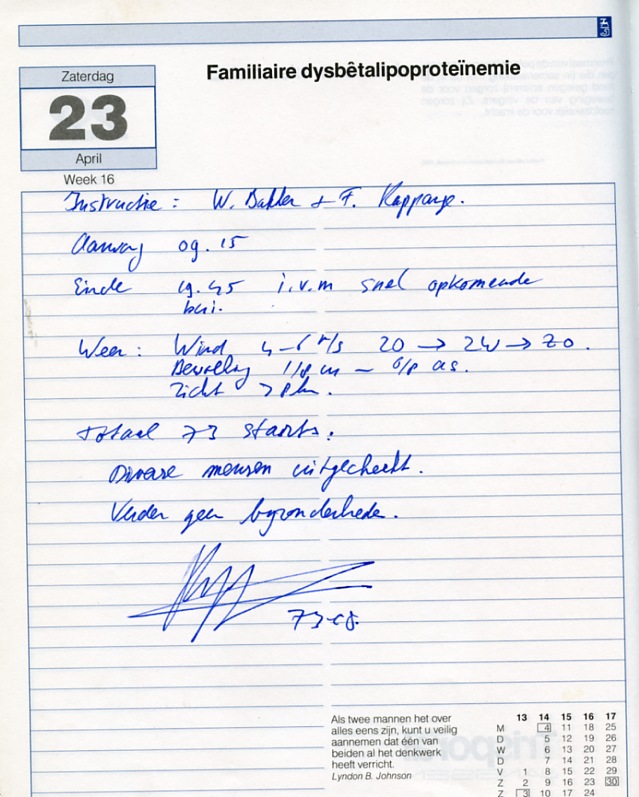 Familiaire dysbêtalipoproteïnemie
Zaterdag
23
April
Week 16
Instructie : W. Bakker + F.
Aanvang 09.15
Einde 19.45 i.v.m snel opkomende
bui.
Weer : Wind 4-6 m/s ZO → ZW → ZO .
Bewolking 1/8 cu - 6/8 as.
Zicht > 8 km.
Totaal 73 starts.
Diverse mensen uitgecheckt.
Verder geen byzonderhede.
Als twee mannen het over
alles eens zijn, kunt u veilig
aannemen dat één van
beiden al het denkwerk
heeft verricht.
Lyndon B. Johnson
13 14 15 16 17
M 4 11 18 25
D 5 12 19 26
W 6 13 20 27
D 7 14 21 28
V 1 8 15 22 29
Z 2 9 16 23 30
Z 3 10 17 24